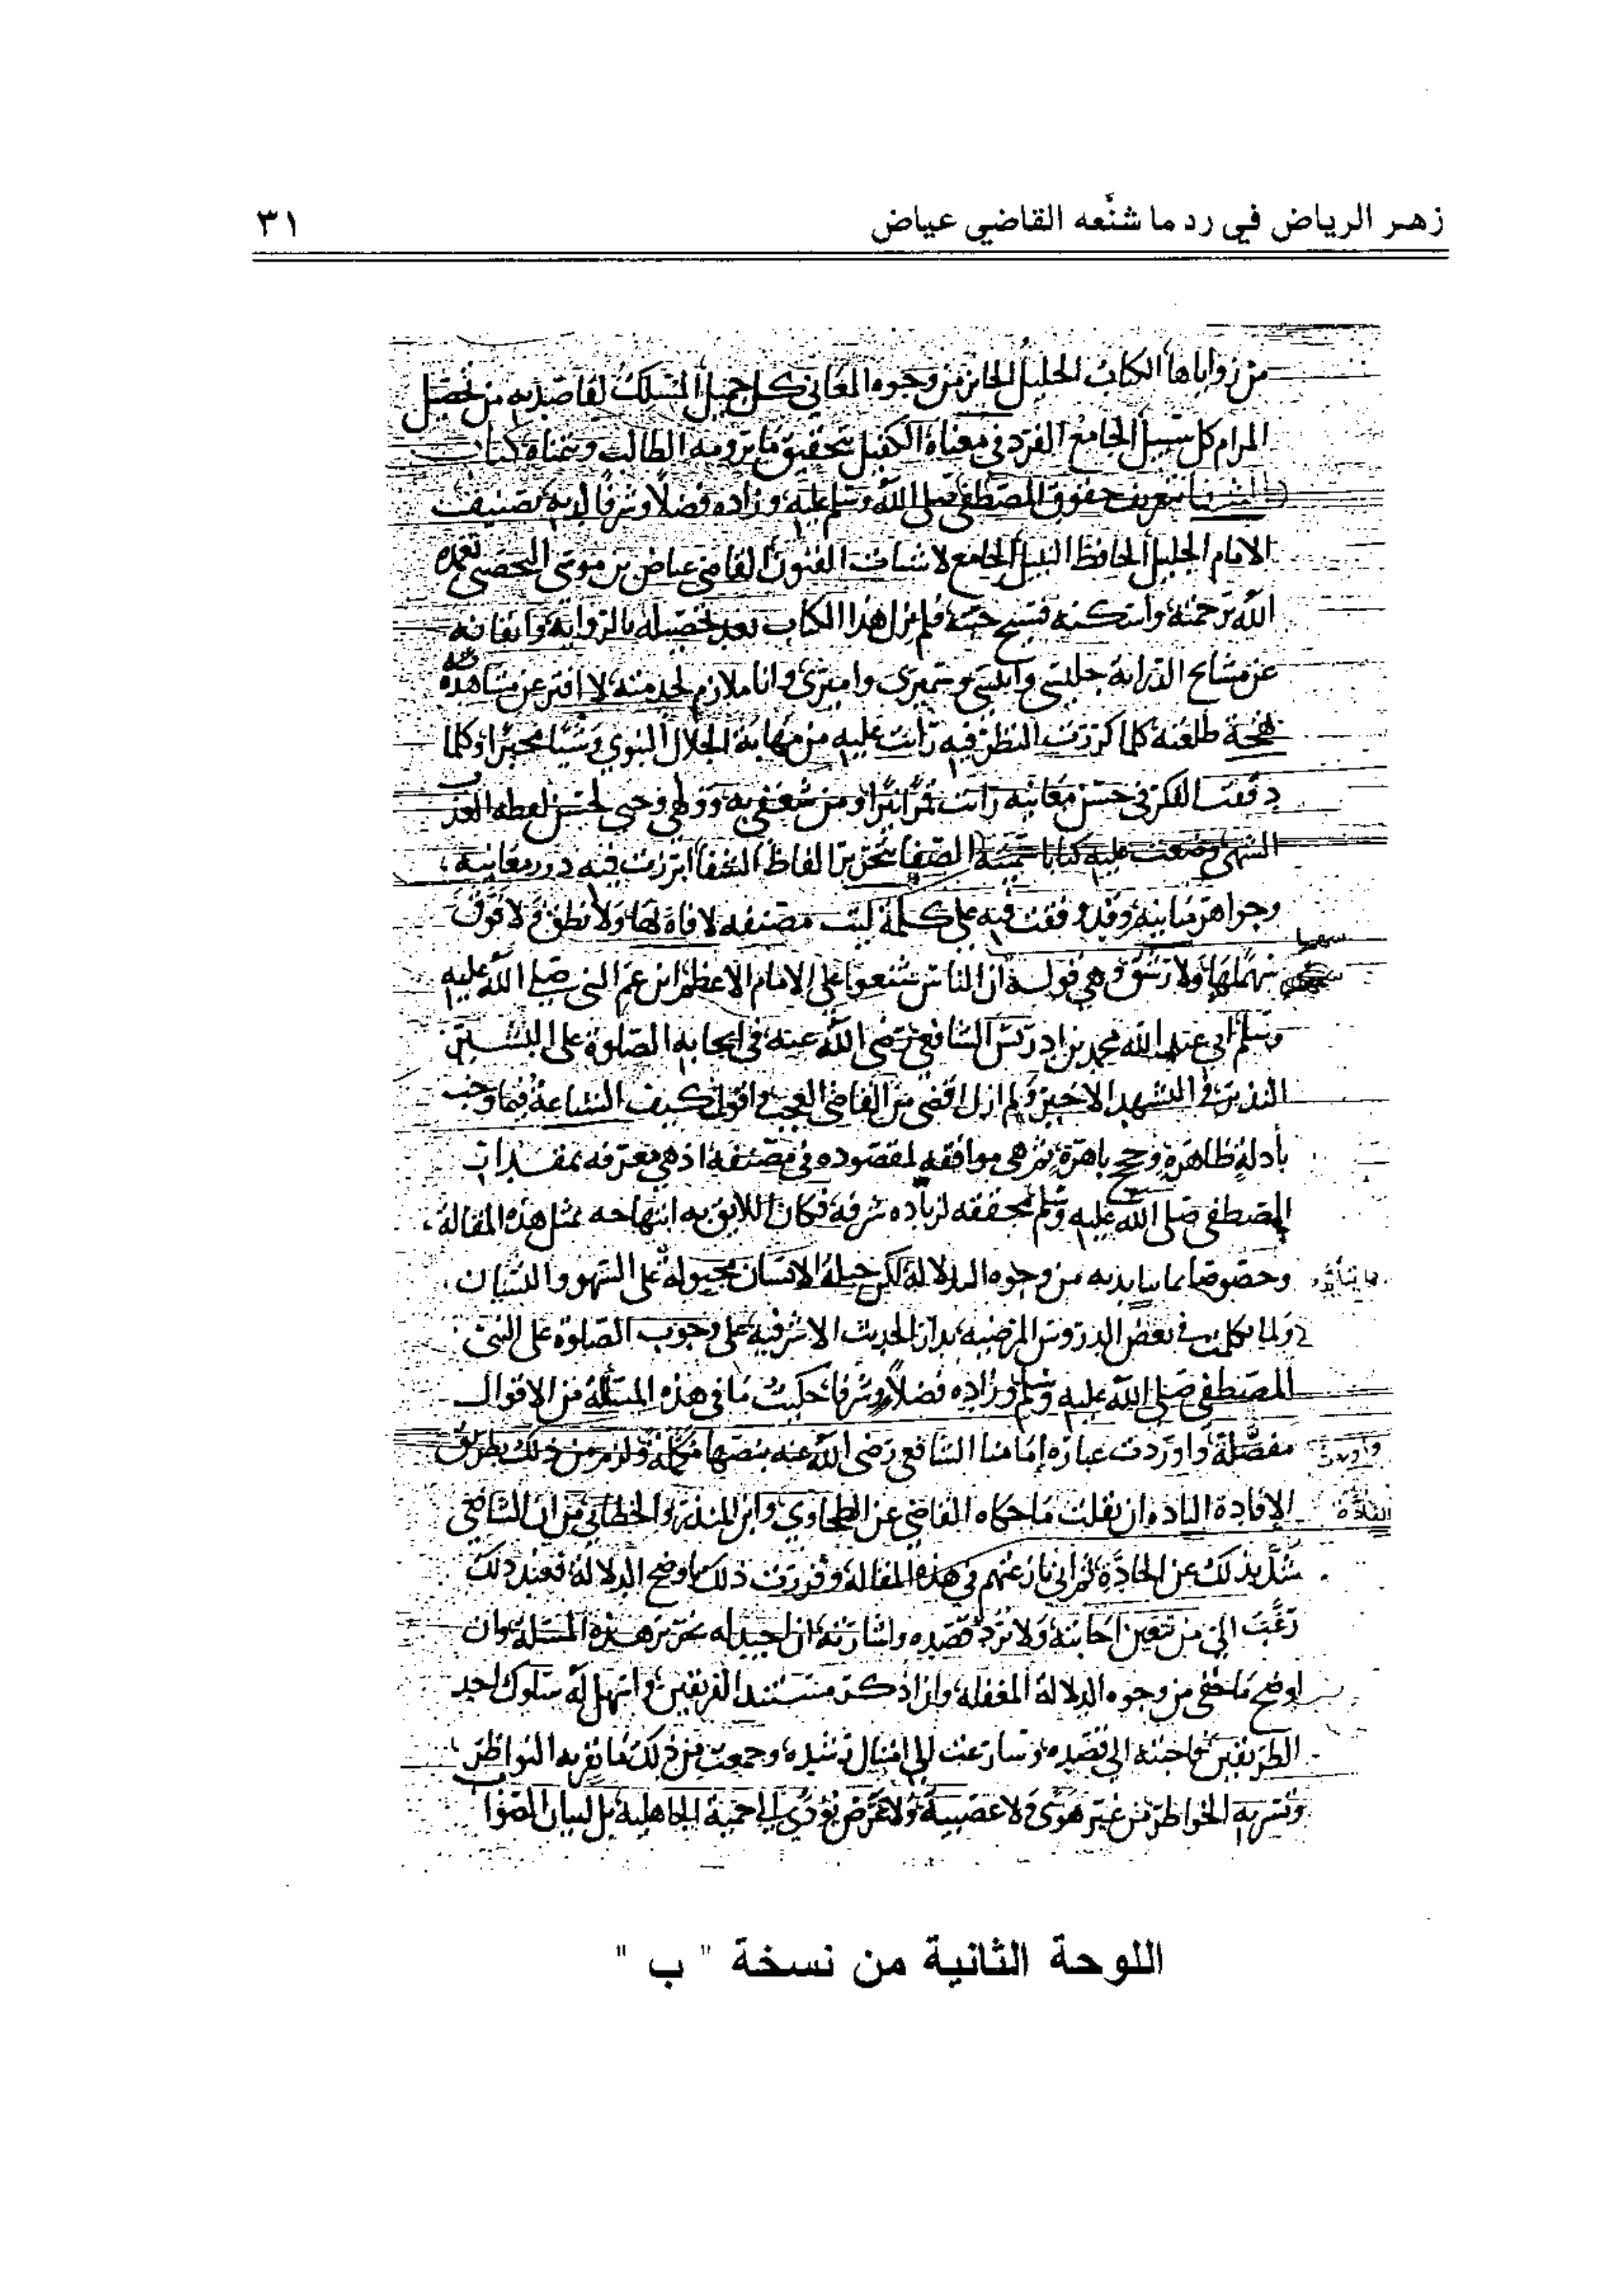 زهر الرياض في رد ما شنَّعه القاضي عياض
٣١
من زواياها الكتاب الجليل الحائز من وجوه المعاني كل جميل المسلك لقاصديه من تحصيل
المرام كل سبيل الجامع الفرد في معناه الكفيل بتحقيق ما يرومه الطالب ويتمناه كتاب
الشفا بتعريف حقوق المصطفى صلى الله وسلم عليه وزاده فضلا وشرفا لديه تصنيف
الامام الجليل الحافظ النبيل الجامع لاشتات الفنون القاضي عياض بن موسى اليحصبي تغمده
الله برحمته واسكنه فسيح جنته فلم يزل هذا الكتاب بعد تحصيله بالرواية واتقانه
عن مشايخ الدراية جليسي وانيسي وسميري واميري وانا ملازم لخدمته لا افتر عن مشاهدة
طلعته كلما كررت النظر فيه رأيت عليه من مهابة الجلال النبوي وشيا محبرا وكلما
دققت الفكر في حسن معانيه رأيت قمرا نيرا ومن شغفي به وولهي وحبي لحسن لفظه العذب
الشهي وضعت عليه كتابا سميته الصفا بتحرير الفاظ الشفا ابرزت فيه درر معانيه
وجواهر مبانيه وقد وقفت فيه على كلمة ليت مصنفه لا فاه بها ولا نطق ولا فوق
سهما
سهما لها ولا رشق وهي قوله ان الناس شنعوا على الامام الاعظم ابن عم النبي صلى الله عليه
وسلم ابي عبد الله محمد بن ادريس الشافعي رضي الله عنه في ايجابه الصلوة على البشير
النذير في التشهد الاخير ولم ازل اقضي من القاضي العجب واقول كيف الشناعة فيما وجب
بأدلة ظاهرة وحجج باهرة ثم هي موافقة لمقصوده في مصنفه اذ هي معرفه بمقدار
المصطفى صلى الله عليه وسلم محققه لزيادة شرفه فكان اللايق به ابتهاجه بمثل هذه المقالة
وخصوصا بما من وجوه الدلالة لكن جبلة الانسان مجبولة على السهو والنسيان
ولما تكلمت في بعض الدروس المرضيه بدار الحديث الاشرفيه على وجوب الصلوة على النبي
المصطفى صلى الله عليه وسلم وزاده فضلا وشرفا حكيت ما في هذه المسئلة من الاقوال
مفصلة واوردت عبارة إمامنا الشافعي رضي الله عنه بنصها مكملة ولزم من ذلك بطريق
الإفادة ان نقلت ما حكاه القاضي عن الطحاوي وابن المنذر والخطابي من ان الشافعي
شذ بذلك عن الجادة ثم اني نازعتهم في هذه المقالة وقررت ذلك باوضح الدلالة فعند ذلك
رغب الي من تتعين اجابته ولا ترد قصده واشارته ان اجيد له تحرير هذه المسئلة وان
اوضح ما خفي من وجوه الدلالة المغفله وان اذكر مستند الفريقين واسهل له سلوك احد
الطريقين فاجبته الى قصده وسارعت الى امتثال وجمعت من ذلك ما تقر به النواظر
وتسر به الخواطر من غير هوى ولا عصبية ولا غرض يؤدي الى حمية الجاهلية بل لبيان الصواب
اللوحة الثانية من نسخة " ب "